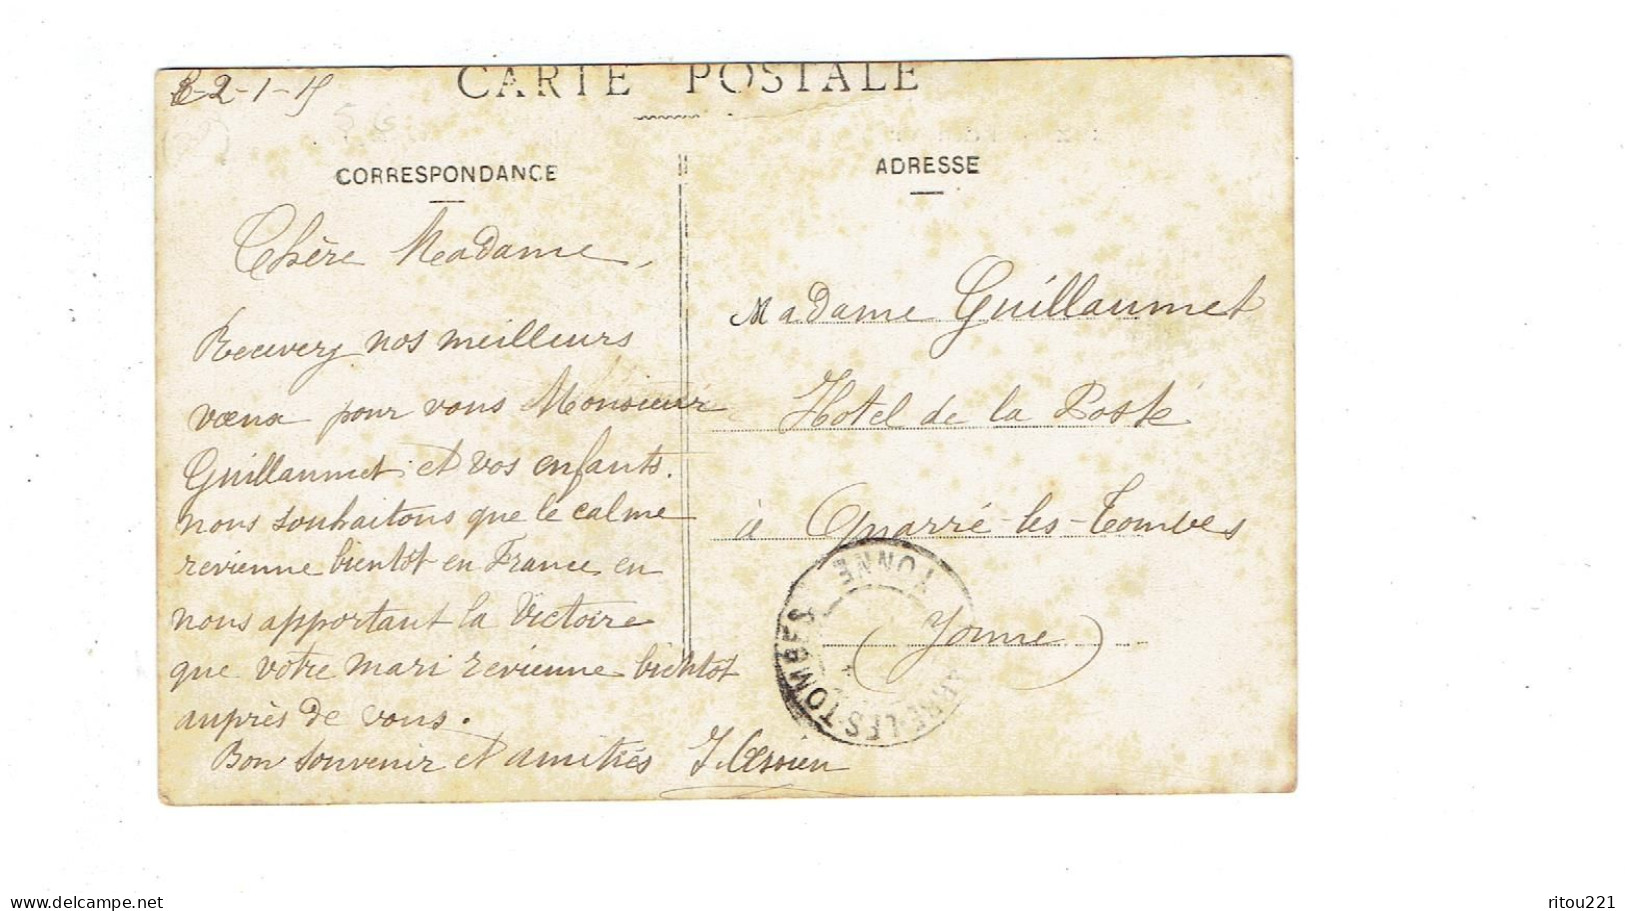 2-1-15
CARTE POSTALE
CORRESPONDANCE
ADRESSE
Chère Madame,
Recevez nos meilleurs
vœux pour vous Monsieur
Guillaumet et vos enfants.
nous souhaitons que le calme
revienne bientot en France en
nous apportant la Victoire
que votre mari revienne bientot
auprès de vous.
Bon souvenir et amitiés
Madame Guillaumet
Hotel de la Poste
à Quarré-les-Tombes
(Yonne)
YONNE
ARRE-LES-TOMBES
delcampe.net
ritou221